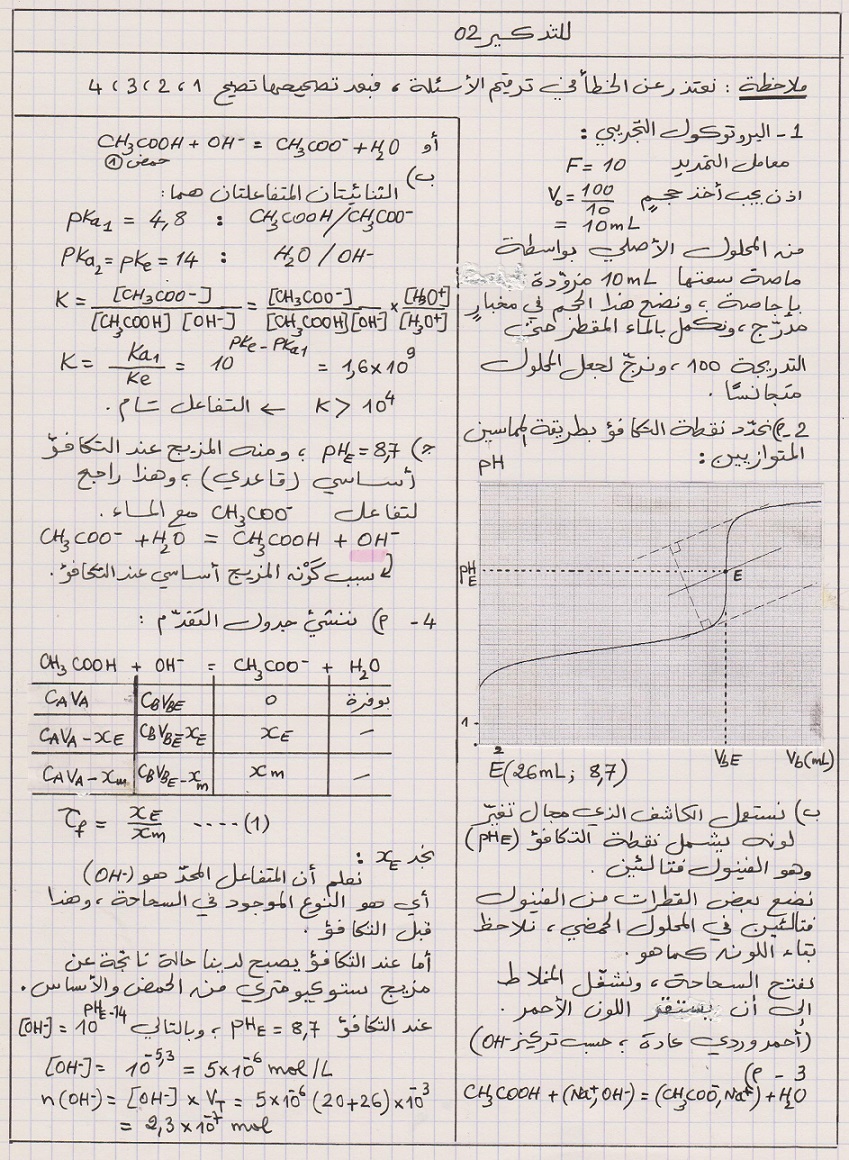 للتذكير 02
ملاحظة : نعتذر عن الخطأ في ترقيم الأسئلة ، فبعد تصحيحها تصبح 1 ، 2 ، 3 ، 4
1 - البروتوكول التجريبي :
معامل التمديد F = 10
اذن يجب أخذ حجم V₀ = 100/10
= 10mL
من المحلول الأصلي بواسطة
ماصة سعتها 10mL مزوّدة
بإجاصة ، ونضع هذا الحجم في مخبار
مدرّج ، ونكمل بالماء المقطر حتى
التدريجة 100 ، ونرجّ لجعل المحلول
متجانسًا .
2 - أ) نحدّد نقطة التكافؤ بطريقة المماسين
المتوازيين :
pH
pH E
E
1
2
VbE Vb(mL)
E(26mL ; 8,7)
ب) نستعمل الكاشف الذي مجال تغيّر
لونه يشمل نقطة التكافؤ (pHE)
وهو الفينول فتالئين .
نضع بعض القطرات من الفينول
فتالئين في المحلول الحمضي ، نلاحظ
بقاء اللون كما هو .
نفتح السحاحة ، ونشغّل المخلاط
إلى أن يستقر اللون الأحمر .
(أحمر وردي عادة ، حسب تركيز OH-)
3 - أ)
CH₃COOH + (Na⁺, OH⁻) = (CH₃COO⁻, Na⁺) + H₂O
أو CH₃COOH + OH⁻ = CH₃COO⁻ + H₂O
حمض ①
ب)
الثنائيتان المتفاعلتان هما :
pKa₁ = 4,8 : CH₃COOH/CH₃COO⁻
PKa₂ = pKe = 14 : H₂O / OH-
K = [CH₃COO-]/[CH₃COOH] [OH-] = [CH₃COO-]/[CH₃COOH][OH-] × [H₃O⁺]/[H₃O⁺]
K = Ka₁/Ke = 10^pKe-PKa1 = 1,6×10⁹
K > 10⁴ ← التفاعل تام .
جـ) pHE = 8,7 ، ومنه المزيج عند التكافؤ
أساسي (قاعدي) ، وهذا راجع
لتفاعل CH₃COO⁻ مع الماء .
CH₃COO⁻ + H₂O = CH₃COOH + OH⁻
سبب كَوْنه المزيج أساسي عند التكافؤ .
4 - أ) ننشئ جدول التقدّم :
CH₃COOH + OH⁻ = CH₃COO⁻ + H₂O
CAVA CBVBE 0 بوفرة
CAVA-xE CBVBE-xE xE –
CAVA-xm CBVBE-xm xm –
τf = xE/xm ----(1)
نجد xE :
نعلم أن المتفاعل المحدّ هو (OH-)
أي هو النوع الموجود في السحاحة ، وهذا
قبل التكافؤ .
أما عند التكافؤ يصبح لدينا حالة ناتجة عن
مزيج ستوكيومتري من الحمض والأساس .
عند التكافؤ pHE = 8,7 ، وبالتالي [OH-] = 10^pHE-14
[OH-] = 10^-5,3 = 5×10⁻⁶ mol/L
n(OH-) = [OH-] × VT = 5×10⁻⁶ (20+26)×10⁻³
= 2,3×10⁻⁷ mol